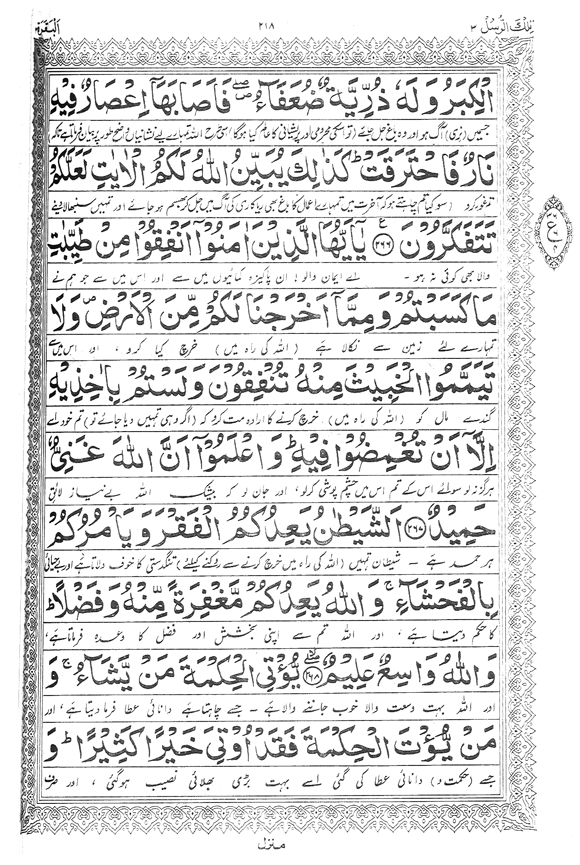 تلك الرسل ٣
٢١٨
البقرة
الْكِبَرُ وَلَهٗ ذُرِّيَّةٌ ضُعَفَآءُ فَاَصَابَهَاۤ اِعْصَارٌ فِيْهِ
نَارٌ فَاحْتَرَقَتْ كَذٰلِكَ يُبَيِّنُ اللّٰهُ لَكُمُ الْاٰيٰتِ لَعَلَّكُمْ
غور کرو (سو کیا تم چاہتے ہو کہ آخرت میں تمہارے اعمال کا باغ بھی ریاکاری کی آگ میں جل کر بھسم ہو جائے اور تمہیں سنبھالا دینے
تَتَفَكَّرُوْنَ ﴿٢٦٦﴾ يٰۤاَيُّهَا الَّذِيْنَ اٰمَنُوْۤا اَنْفِقُوْا مِنْ طَيِّبٰتِ
والا بھی کوئی نہ ہو۔ اے ایمان والو! ان پاکیزہ کمائیوں میں سے اور اس میں سے جو ہم نے
مَا كَسَبْتُمْ وَمِمَّاۤ اَخْرَجْنَا لَكُمْ مِّنَ الْاَرْضِ وَلَا
تمہارے لئے زمین سے نکالا ہے (اللہ کی راہ میں) خرچ کیا کرو، اور اس میں سے
تَيَمَّمُوا الْخَبِيْثَ مِنْهُ تُنْفِقُوْنَ وَلَسْتُمْ بِاٰخِذِيْهِ
گندے مال کو (اللہ کی راہ میں) خرچ کرنے کا ارادہ مت کرو کہ (اگر وہی تمہیں دیا جائے تو) تم خود اسے
اِلَّاۤ اَنْ تُغْمِضُوْا فِيْهِ وَاعْلَمُوْۤا اَنَّ اللّٰهَ غَنِىٌّ
ہرگز نہ لو سوائے اس کے کہ تم اس میں چشم پوشی کر لو، اور جان لو کہ بیشک اللہ بے نیاز لائقِ
حَمِيْدٌ ﴿٢٦٧﴾ اَلشَّيْطٰنُ يَعِدُكُمُ الْفَقْرَ وَيَاْمُرُكُمْ
ہر حمد ہے۔ شیطان تمہیں (اللہ کی راہ میں خرچ کرنے سے روکنے کیلئے) تنگدستی کا خوف دلاتا ہے اور بے حیائی
بِالْفَحْشَآءِ ۚ وَاللّٰهُ يَعِدُكُمْ مَّغْفِرَةً مِّنْهُ وَفَضْلًا ؕ
کا حکم دیتا ہے، اور اللہ تم سے اپنی بخشش اور فضل کا وعدہ فرماتا ہے،
وَاللّٰهُ وَاسِعٌ عَلِيْمٌ ﴿٢٦٨﴾ يُّؤْتِى الْحِكْمَةَ مَنْ يَّشَآءُ ۚ وَ
اور اللہ بہت وسعت والا خوب جاننے والا ہے۔ جسے چاہتا ہے دانائی عطا فرما دیتا ہے، اور
مَنْ يُّؤْتَ الْحِكْمَةَ فَقَدْ اُوْتِىَ خَيْرًا كَثِيْرًا ؕ وَ
جسے (حکمت و) دانائی عطا کی گئی اسے بہت بڑی بھلائی نصیب ہوگئی، اور صرف
منزل